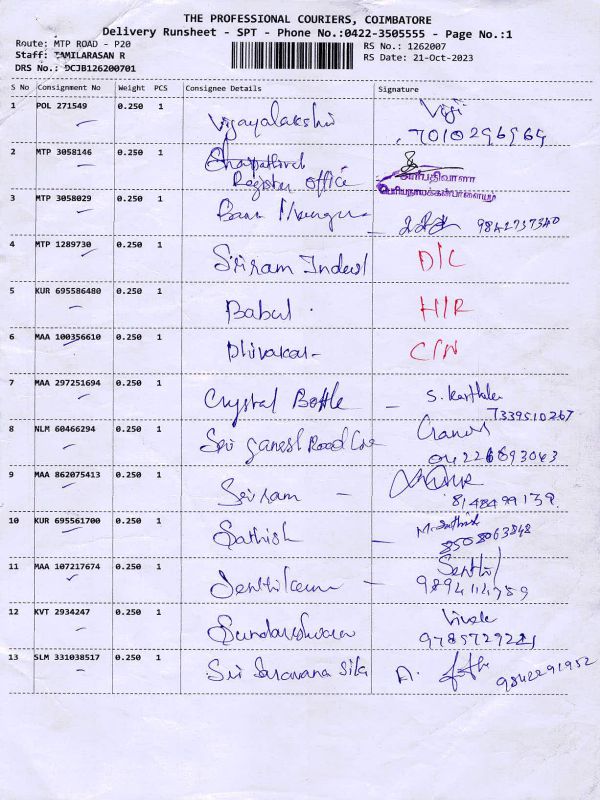 THE PROFESSIONAL COURIERS, COIMBATORE
Delivery Runsheet - SPT - Phone No.:0422-3505555 - Page No.:1
Route: MTP ROAD - P20
RS No.: 1262007
Staff: TAMILARASAN R
RS Date: 21-Oct-2023
DRS No.: DCJB126200701
S No Consignment No Weight PCS Consignee Details Signature
1 POL 271549 0.250 1 Vijayalakshmi Viji
7010296969
2 MTP 3058146 0.250 1
Register office
பெரியநாயக்கன்பாளையம்
3 MTP 3058029 0.250 1 9842737340
4 MTP 1289730 0.250 1 Sriram Indust D/C
5 KUR 695586480 0.250 1 Babul H/R
6 MAA 100356610 0.250 1 Dhivakar C/N
7 MAA 297251694 0.250 1 Crystal Bottle - S. Karthika
7339510267
8 NLM 60466294 0.250 1 Sri Ganesh Road
04226693043
9 MAA 862075413 0.250 1 Sriram -
8148499139
10 KUR 695561700 0.250 1 Sathish - M. Sathish
8508063848
11 MAA 107217674 0.250 1 Senthilkum - Senthil
9894114759
12 KVT 2934247 0.250 1 Sundareshwara Vivek
9785729221
13 SLM 331038517 0.250 1 Sri Saravana Silk A.
9842291952